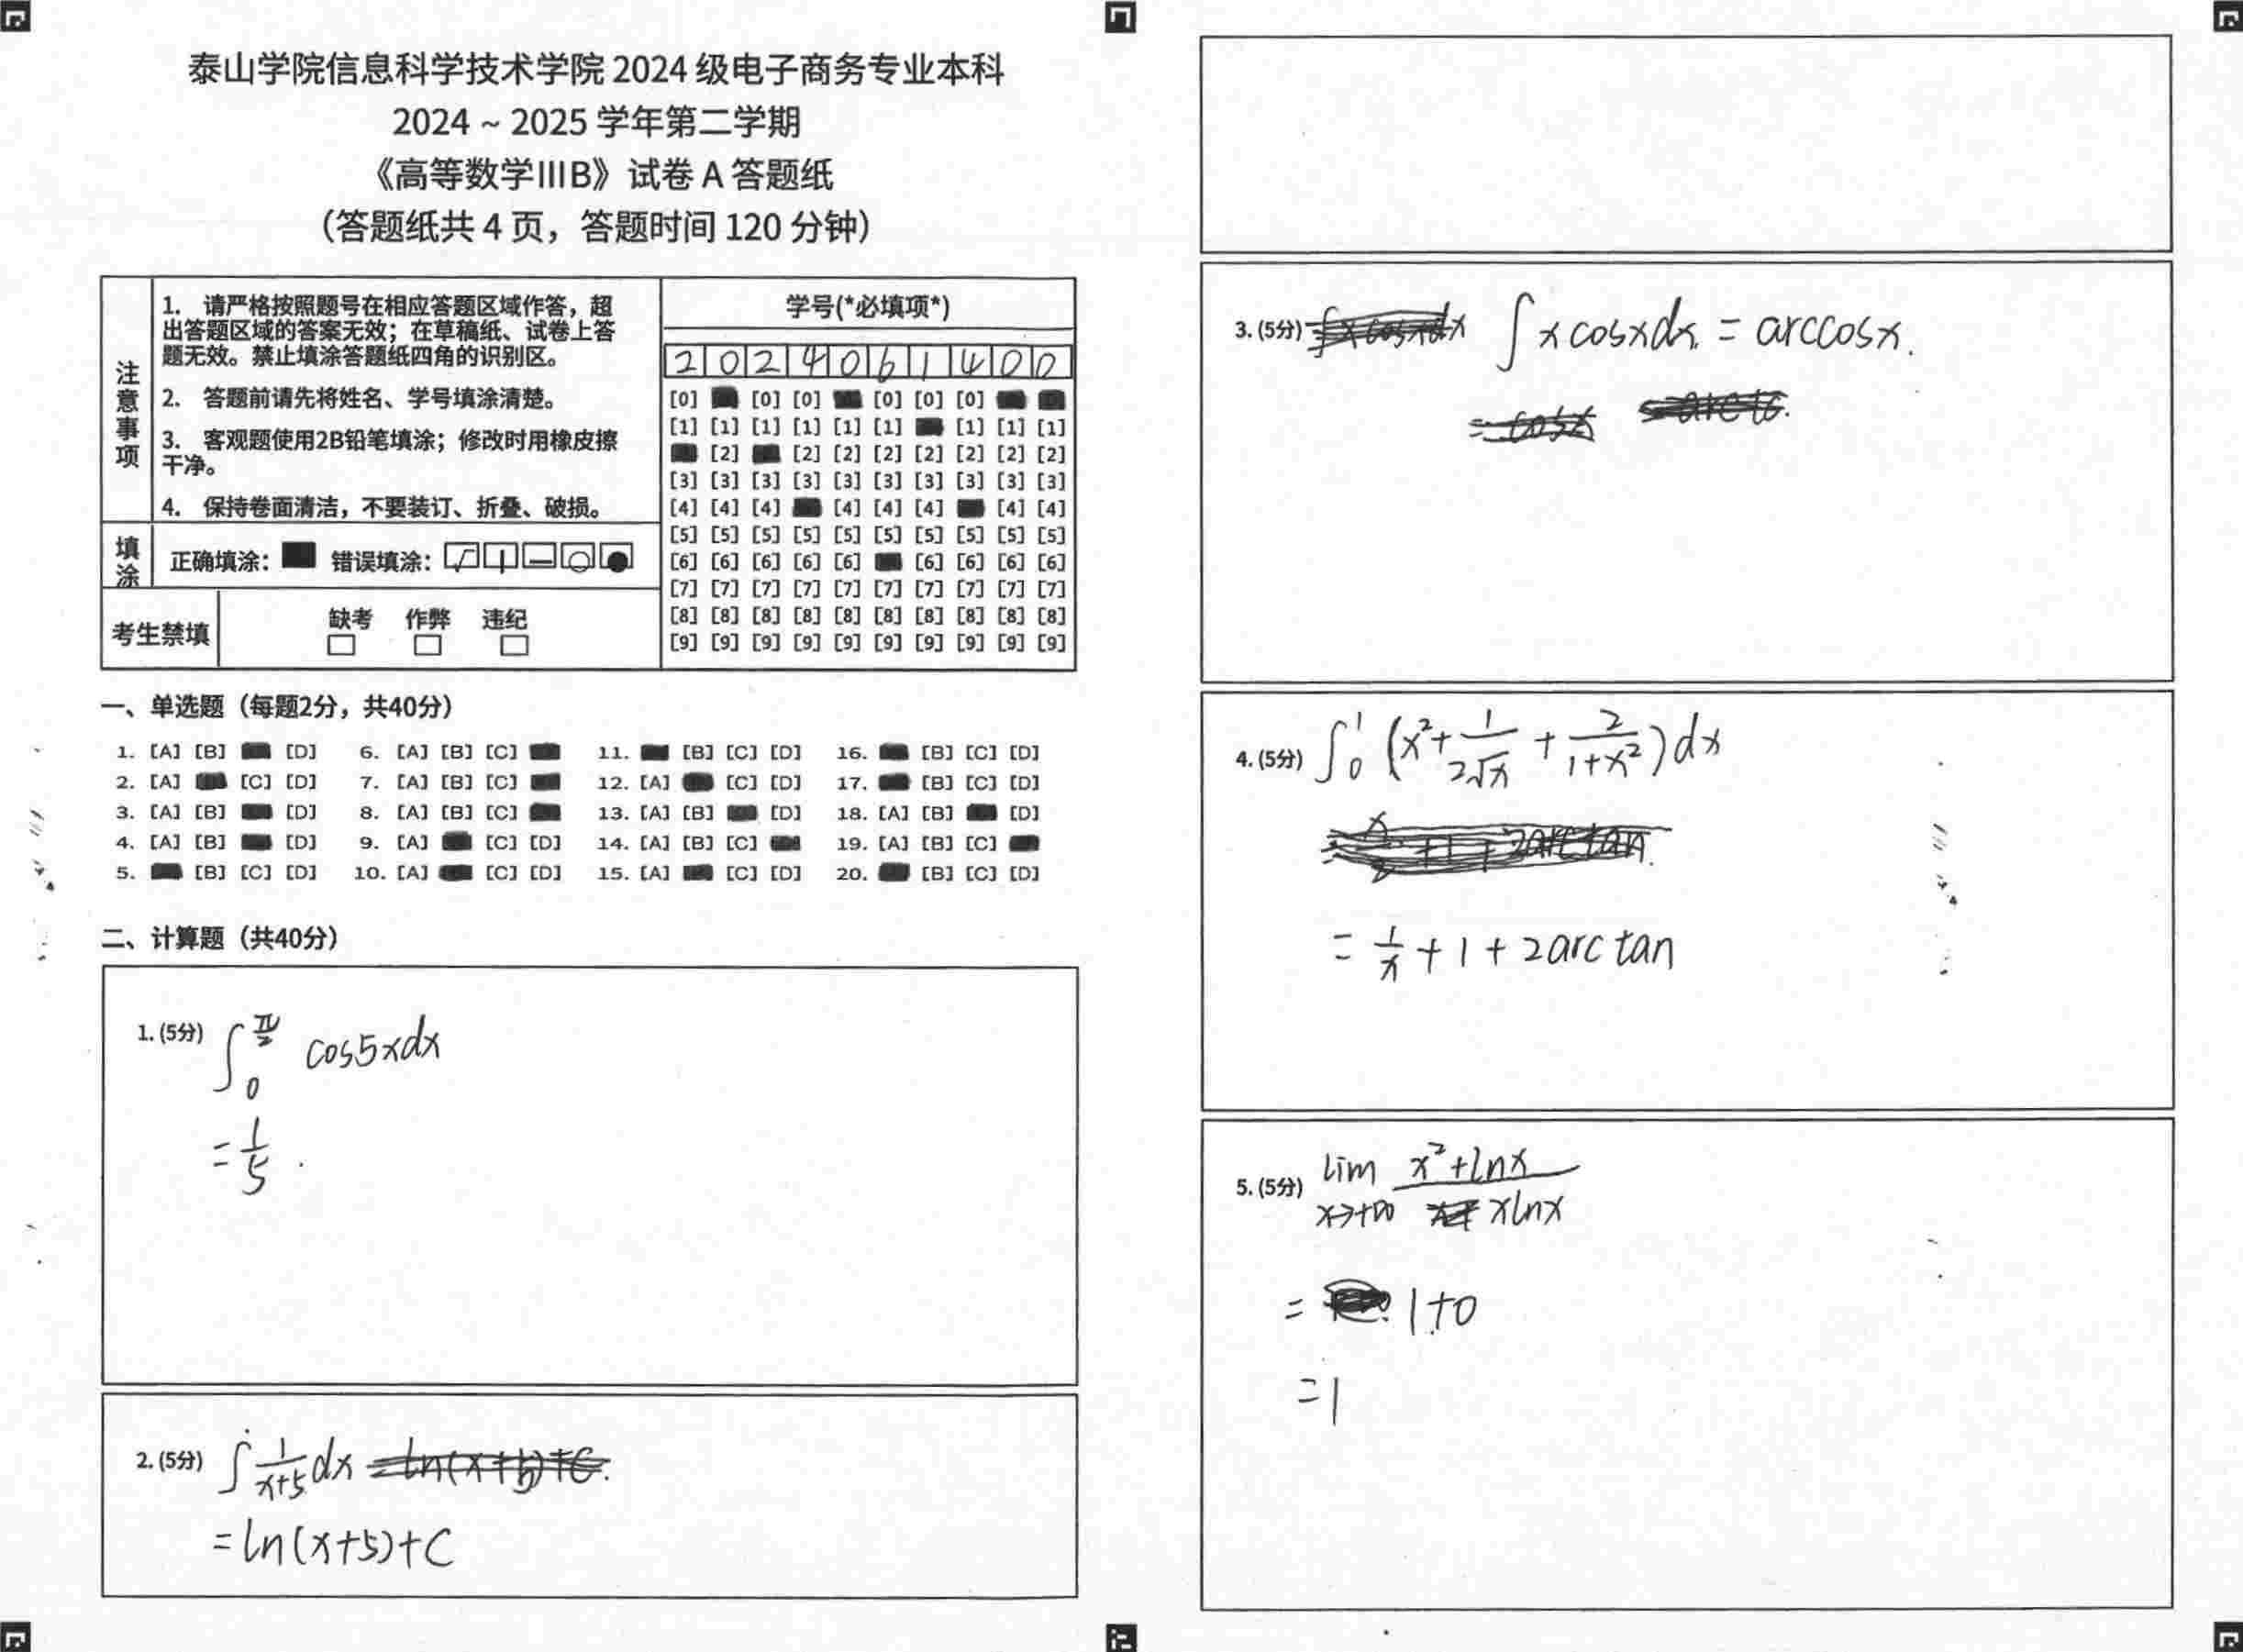 泰山学院信息科学技术学院 2024 级电子商务专业本科
2024 ~ 2025 学年第二学期
《高等数学ⅢB》试卷 A 答题纸
（答题纸共 4 页，答题时间 120 分钟）
注意事项
1. 请严格按照题号在相应答题区域作答，超
出答题区域的答案无效；在草稿纸、试卷上答
题无效。禁止填涂答题纸四角的识别区。
2. 答题前请先将姓名、学号填涂清楚。
3. 客观题使用2B铅笔填涂；修改时用橡皮擦
干净。
4. 保持卷面清洁，不要装订、折叠、破损。
填涂
正确填涂： 错误填涂：
考生禁填
缺考 作弊 违纪
学号(*必填项*)
2 0 2 4 0 6 1 4 0 0
[0] [0] [0] [0] [0] [0]
[1] [1] [1] [1] [1] [1] [1] [1] [1]
[2] [2] [2] [2] [2] [2] [2] [2]
[3] [3] [3] [3] [3] [3] [3] [3] [3] [3]
[4] [4] [4] [4] [4] [4] [4] [4]
[5] [5] [5] [5] [5] [5] [5] [5] [5] [5]
[6] [6] [6] [6] [6] [6] [6] [6] [6]
[7] [7] [7] [7] [7] [7] [7] [7] [7] [7]
[8] [8] [8] [8] [8] [8] [8] [8] [8] [8]
[9] [9] [9] [9] [9] [9] [9] [9] [9] [9]
一、单选题（每题2分，共40分）
1. [A] [B] [D] 6. [A] [B] [C] 11. [B] [C] [D] 16. [B] [C] [D]
2. [A] [C] [D] 7. [A] [B] [C] 12. [A] [C] [D] 17. [B] [C] [D]
3. [A] [B] [D] 8. [A] [B] [C] 13. [A] [B] [D] 18. [A] [B] [D]
4. [A] [B] [D] 9. [A] [C] [D] 14. [A] [B] [C] 19. [A] [B] [C]
5. [B] [C] [D] 10. [A] [C] [D] 15. [A] [C] [D] 20. [B] [C] [D]
二、计算题（共40分）
1. (5分) ∫₀^(π/2) cos5xdx
= 1/5 .
2. (5分) ∫ 1/(x+5) dx = ln(x+5)+C.
= ln(x+5)+C
3. (5分) ∫x cosxdx ∫ x cosxdx = arccosx.
= cosx
4. (5分) ∫₀¹ (x² + 1/(2√x) + 2/(1+x²)) dx
= 1/x + 1 + 2arctan
5. (5分) lim x→+∞ (x²+lnx)/(xlnx)
= 1+0
= 1